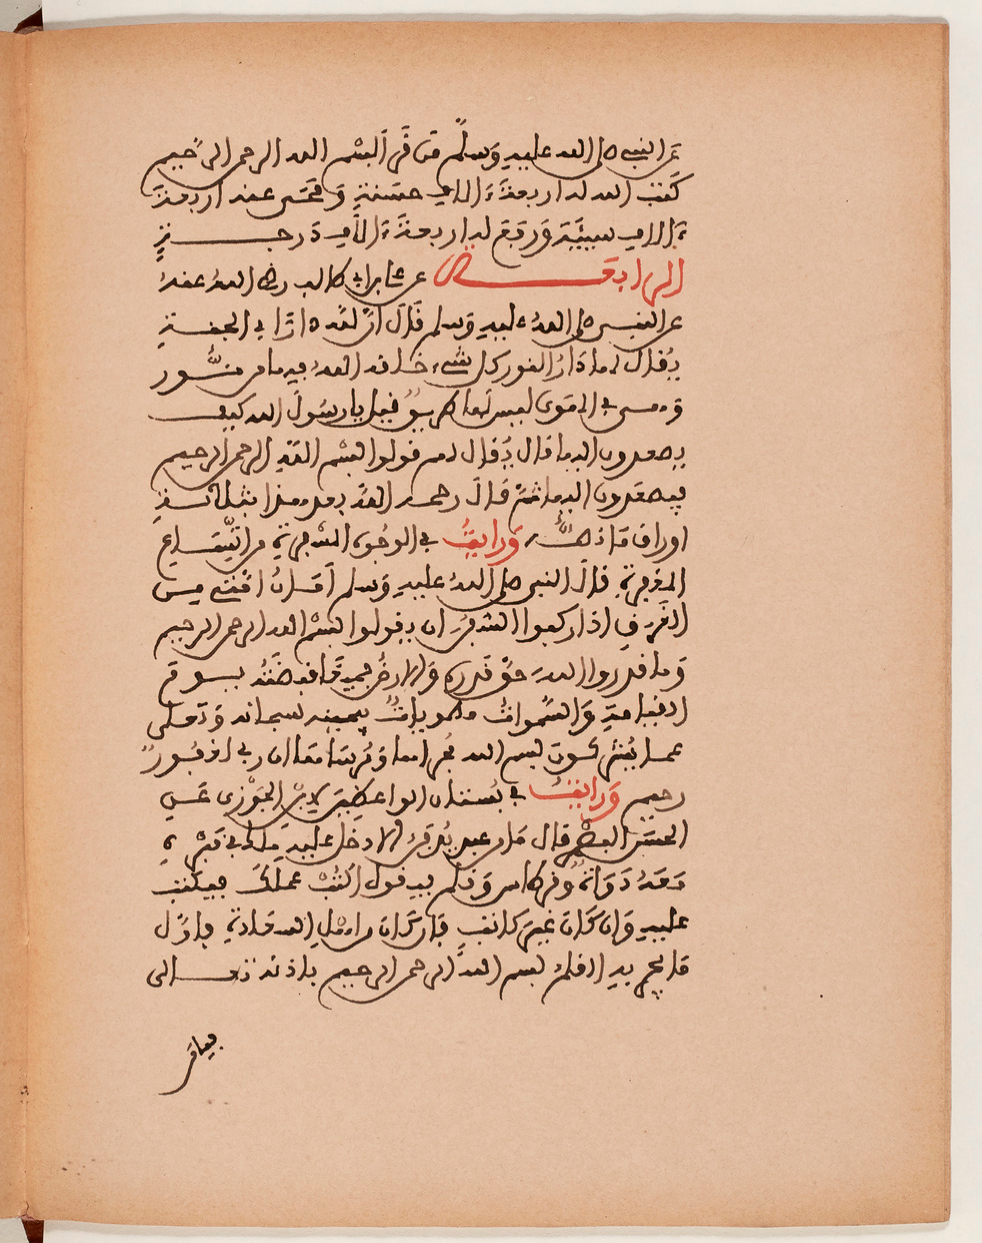 عن النبي صلى الله عليه وسلم من قرأ بسم الله الرحمن الرحيم
كتب الله له اربعة ءالاف حسنة ومحى عنه اربعة
ءالاف سيئة ورفع له اربعة ءالاف درجة
الرابعة عن علي بن ابي طالب رضي الله عنه
عن النبي صلى الله عليه وسلم قال ان لله دارا في الجنة
يقال لها دار النور كل شيء خلقه الله فيها من نور
وهي في الهوى ليس لها طريق قيل يا رسول الله كيف
يصعدون اليها قال يقال لهم قولوا بسم الله الرحمن الرحيم
فيصعدون اليها قال رحمه الله بعد هذا بثلاثة
اوراق ورايت في الوجوه المسفرة من اتساع
المغفرة قال النبي صلى الله عليه وسلم امان امتي من
الغرق اذا ركبوا السفن ان يقولوا بسم الله الرحمن الرحيم
وما قدروا الله حق قدره والارض جميعا قبضته يوم
القيامة والسموات مطويات بيمينه سبحانه وتعالى
عما يشركون بسم الله مجراها ومرساها ان ربي لغفور
رحيم ورايت في بستان الواعظين لابن الجوزي عن
الحسن البصري قال ما من عبد يدفن الا دخل عليه ملك في قبره
معه دواة وقرطاس وقلم فيقول اكتب عملك فيكتب
عليه وان كان غير كاتب فان كان من اهل السعادة فاول
ما يجري به القلم بسم الله الرحمن الرحيم باذنه تعالى